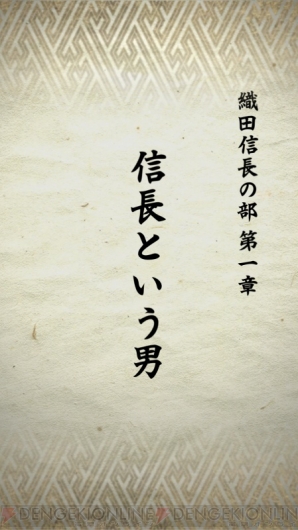 織田信長の部 第一章
信長という男
DENGEKIONLINE DENGEKIONLINE